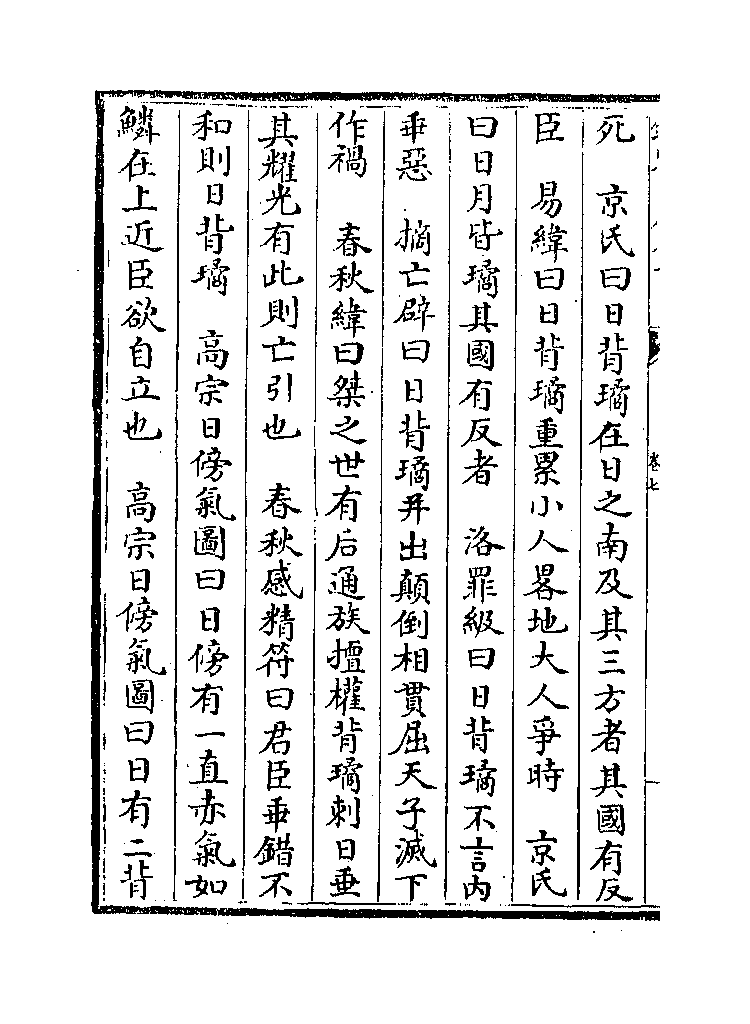 死　京氏曰日背璚在日之南及其三方者其國有反
臣　易緯曰日背璚重累小人畧地大人爭時　京氏
曰日月皆璚其國有反者　洛罪級曰日背璚不言内
乖惡　摘亡辟曰日背璚并出顛倒相貫屈天子滅下
作禍　春秋緯曰桀之世有后通族擅權背璚刺日垂
其耀光有此則亡引也　春秋感精符曰君臣乖錯不
和則日背璚　高宗日傍氣圖曰日傍有一直赤氣如
鱗在上近臣欲自立也　高宗日傍氣圖曰日有二背
卷七